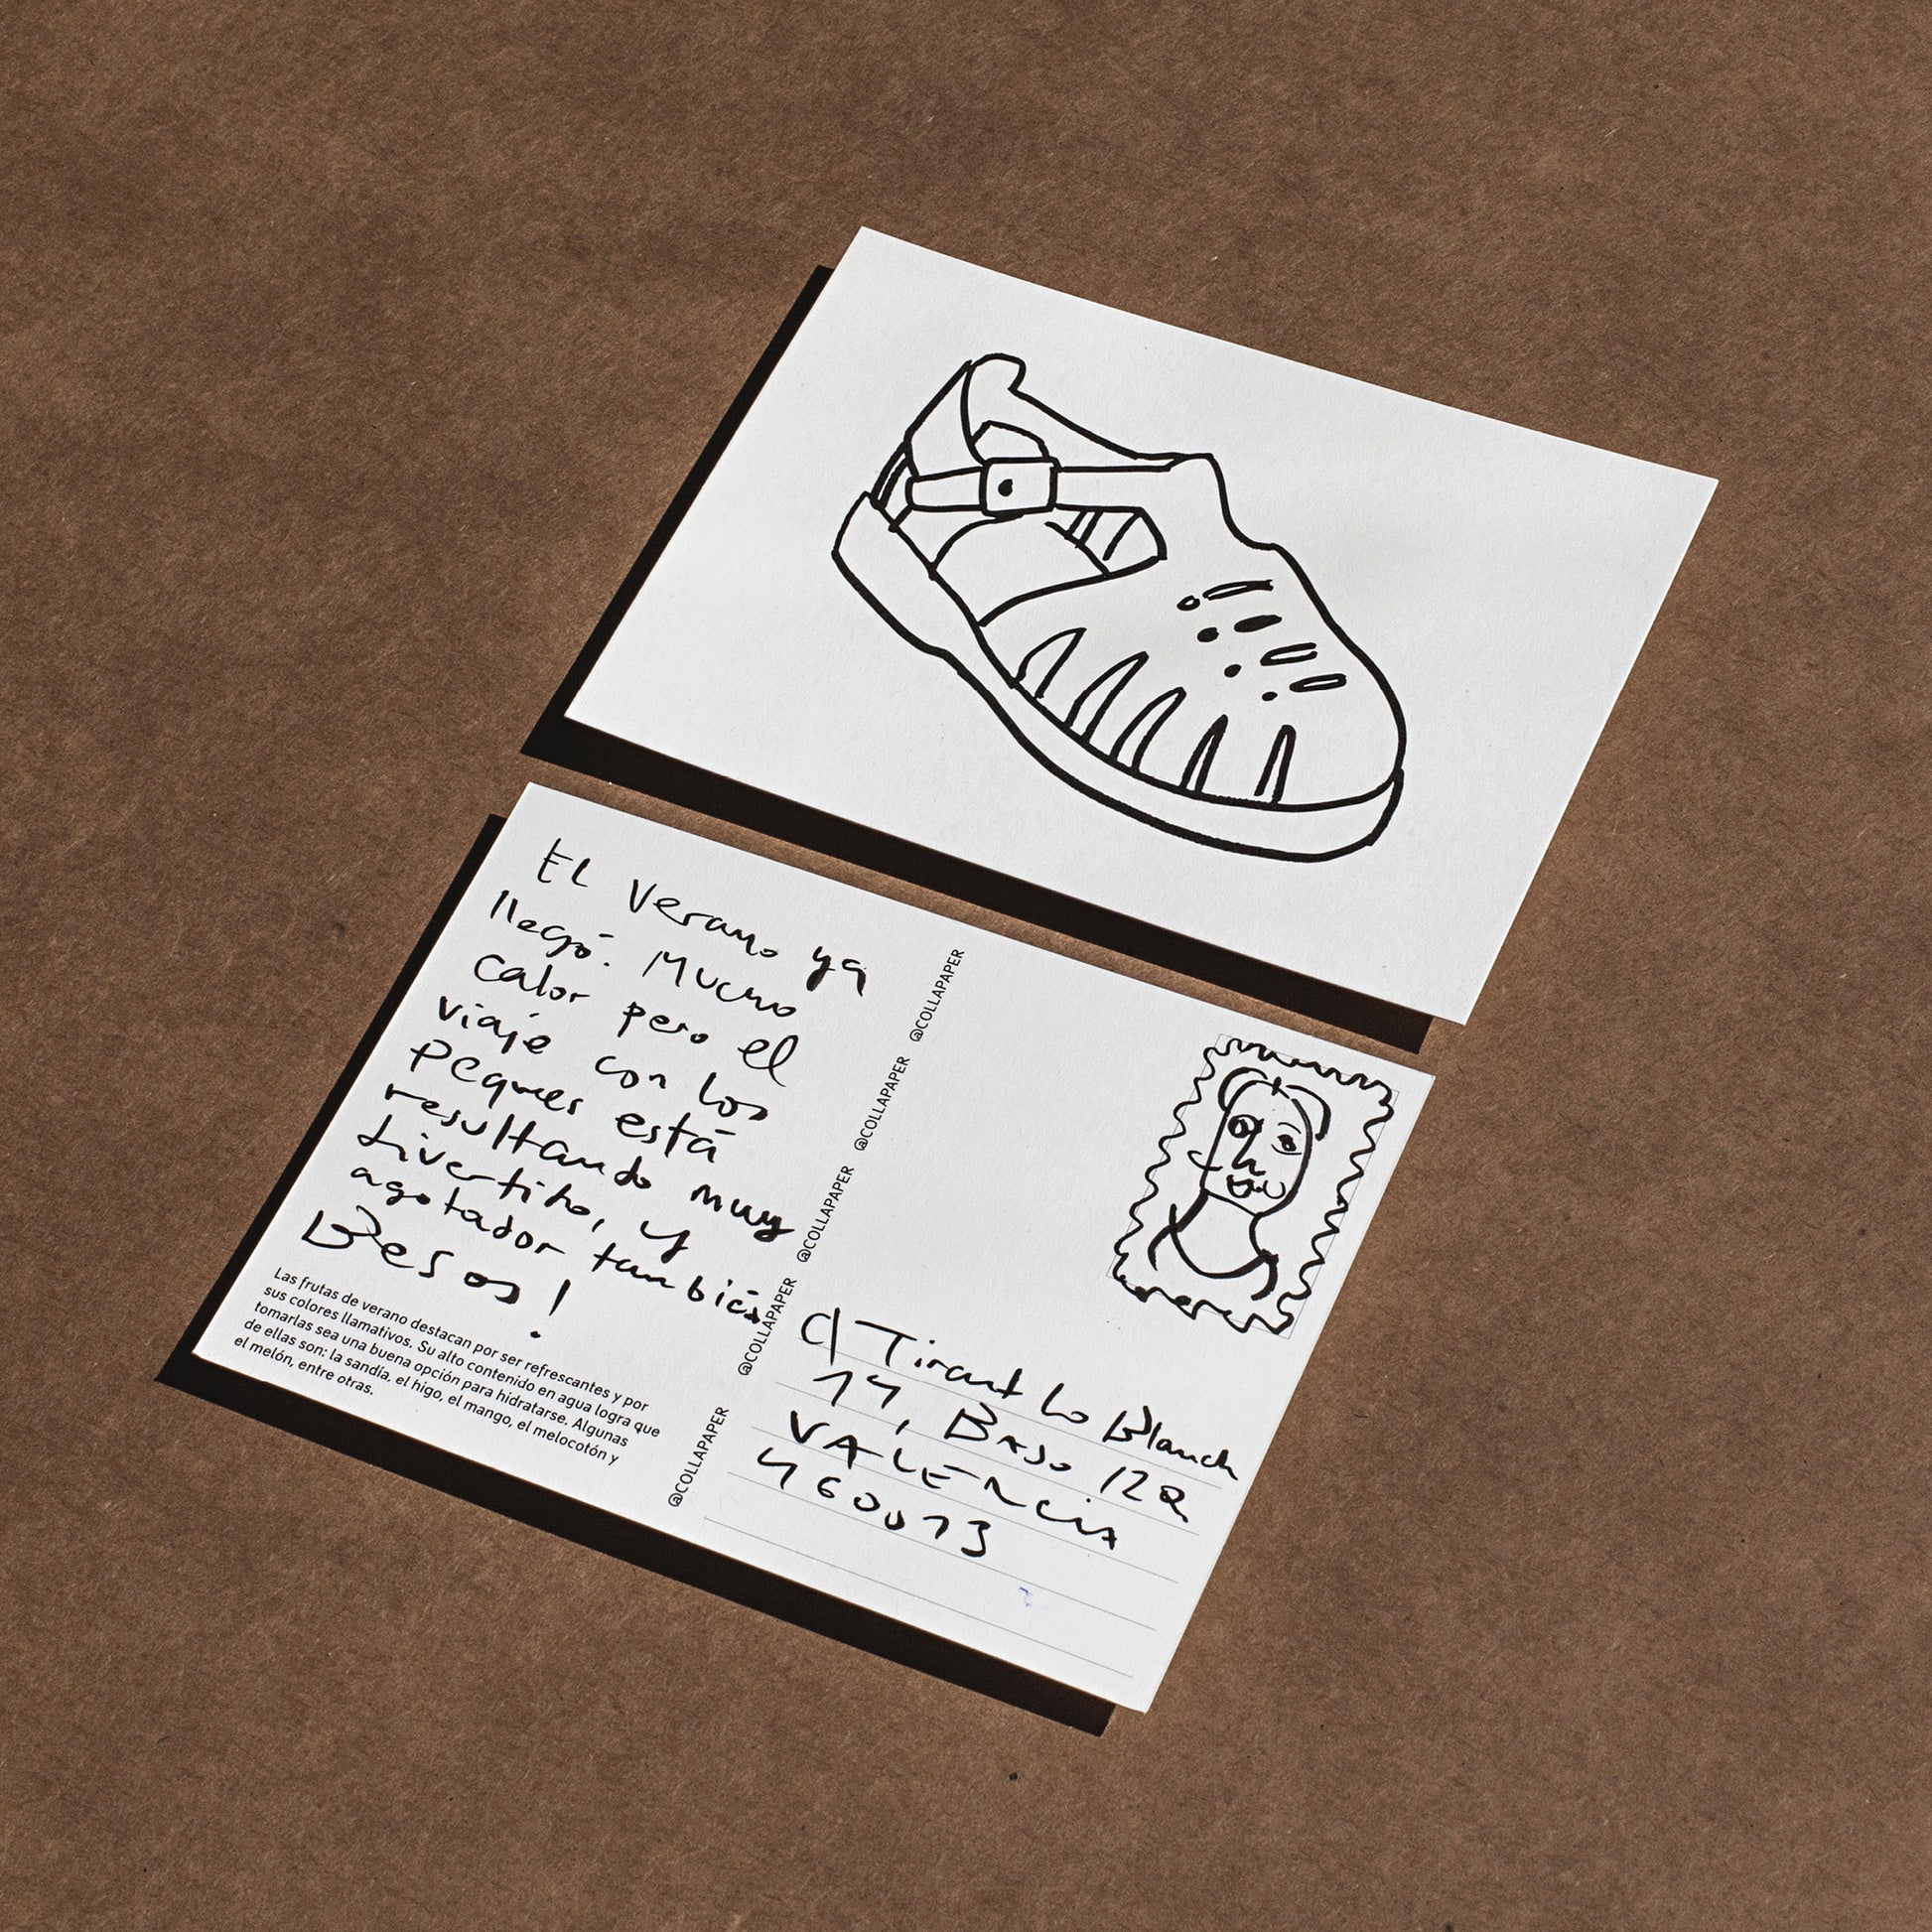 El verano ya
llegó. Mucho
calor pero el
viaje con los
peques está
resultando muy
divertido, y
agotador también
Besos!
Las frutas de verano destacan por ser refrescantes y por
sus colores llamativos. Su alto contenido en agua logra que
tomarlas sea una buena opción para hidratarse. Algunas
de ellas son: la sandía, el higo, el mango, el melocotón y
el melón, entre otras.
@COLLAPAPER @COLLAPAPER @COLLAPAPER @COLLAPAPER @COLLAPAPER
C/ Tirant Lo Blanch
14, Bajo 12
VALENCIA
460013